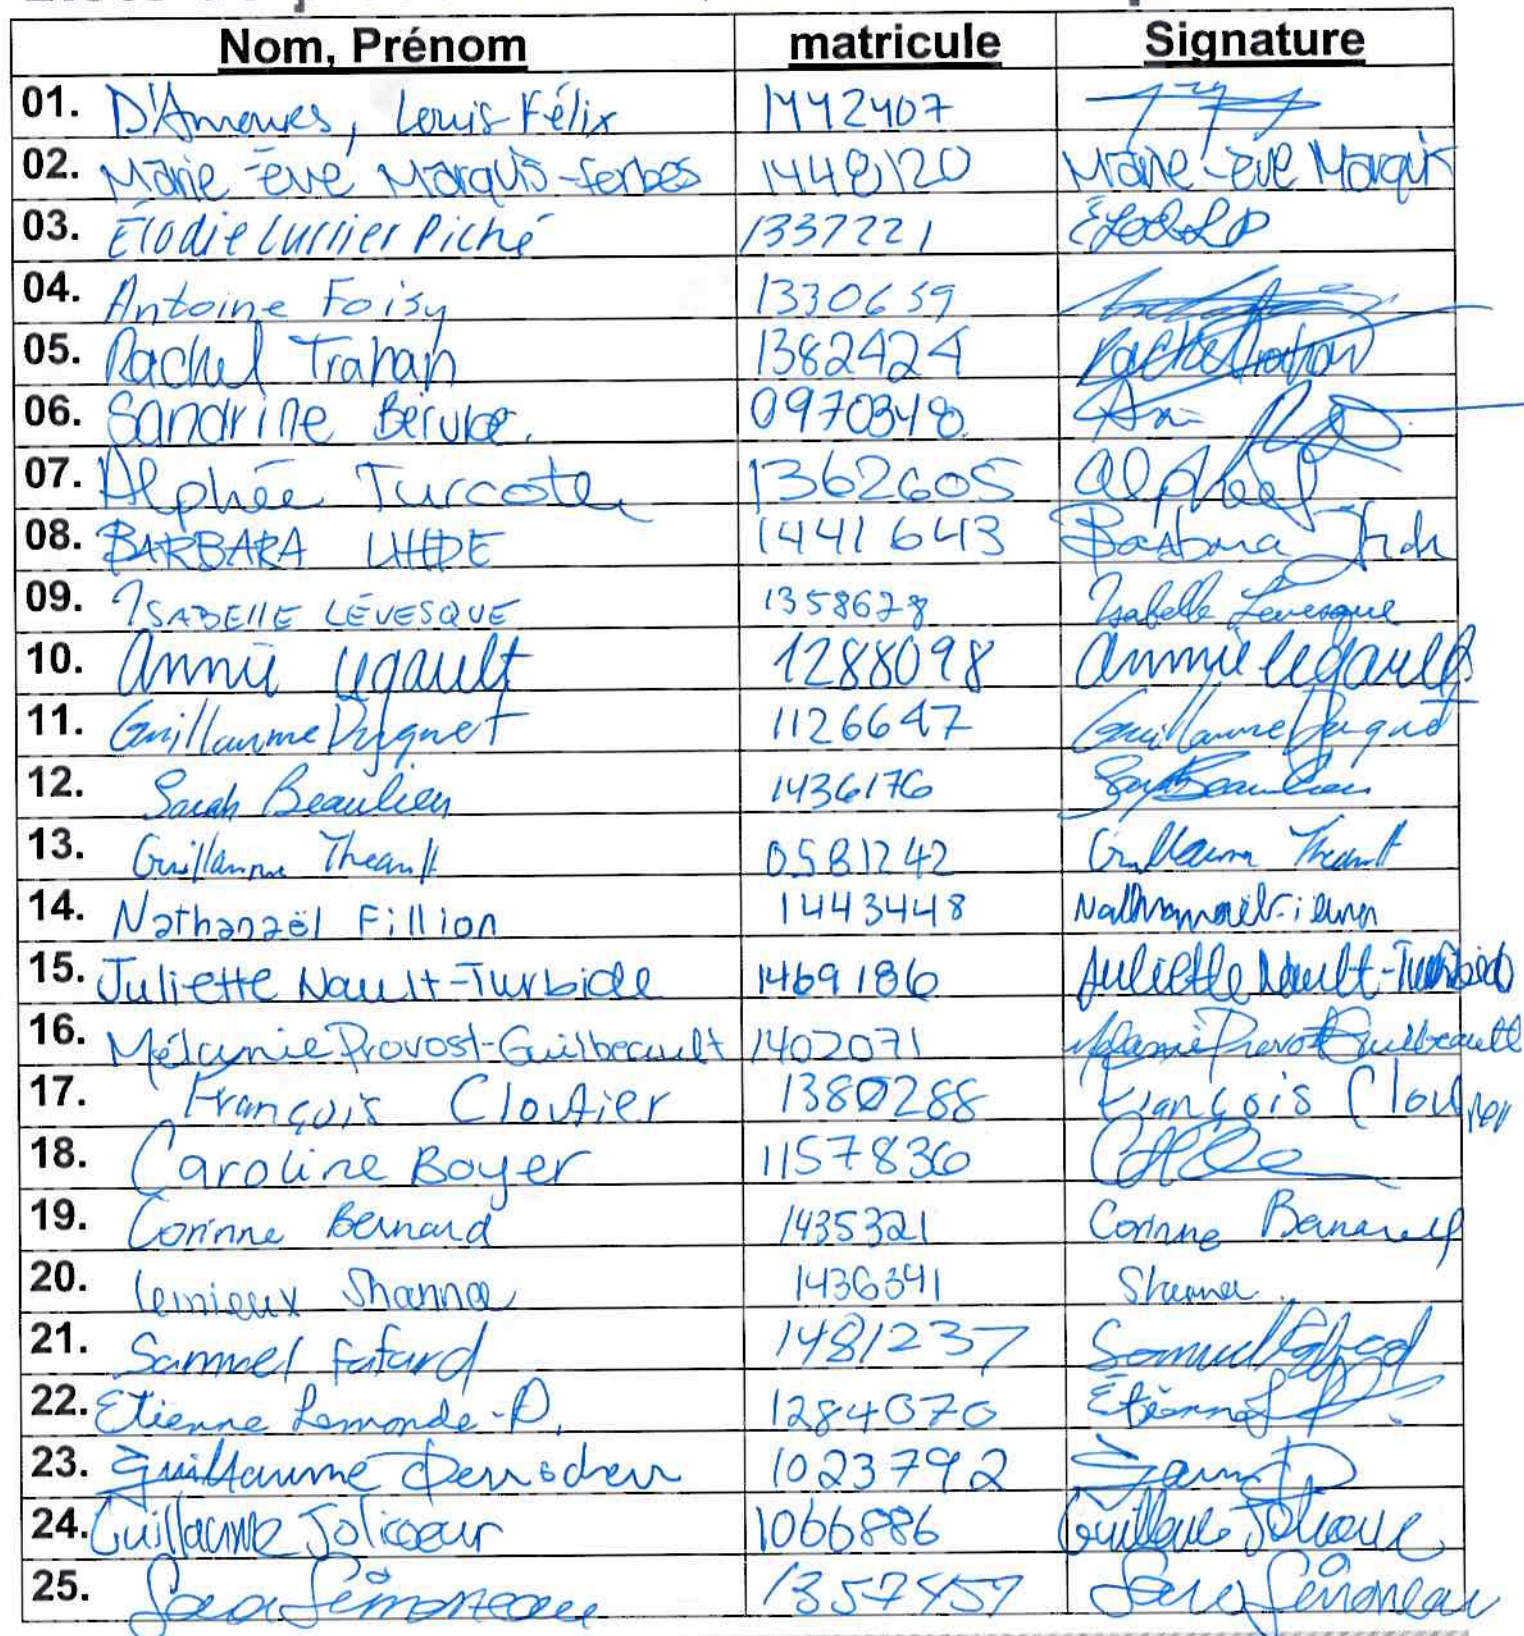 Nom, Prénom matricule Signature
01. D'Amours, Louis-Félix 1442407
02. Marie-ève Marquis-Forbes 1448120 Marie-ève Marquis
03. Élodie Lussier Piché 1337221
04. Antoine Foisy 1330659
05. Rachel Trahan 1382424 Rachel Trahan
06. Sandrine Bérubé. 0970348
07. Alphée Turcotte 1362605 Alphée
08. BARBARA 1441643 Barbara
09. ISABELLE LÉVESQUE 1358678 Isabelle Lévesque
10. Annie Legault 1288098 Annie Legault
11. Guillaume Duquet 1126647 Guillaume Duquet
12. Sarah Beaulieu 1436176 Beaulieu
13. Guillaume Theault 0581242 Guillaume Theault
14. Nathanaël Fillion 1443448 Nathanaël
15. Juliette Nault-Turbide 1469186 Juliette Nault-Turbide
16. Mélanie Provost-Guilbeault 1402071 Mélanie Provost Guilbeault
17. François Cloutier 1380288 François Cloutier
18. Caroline Boyer 1157836
19. Corinne Bernard 1435321 Corinne Bernard
20. Lemieux Shanna 1436341 Shanna
21. Samuel Fafard 1481237 Samuel Fafard
22. Etienne Lemonde-P. 1284070 Étienne L P.
23. Guillaume 1023792
24. Guillaume Jolicoeur 1066886 Guillaume Jolicoeur
25. Sara Simoneau 1357457 Sara Simoneau